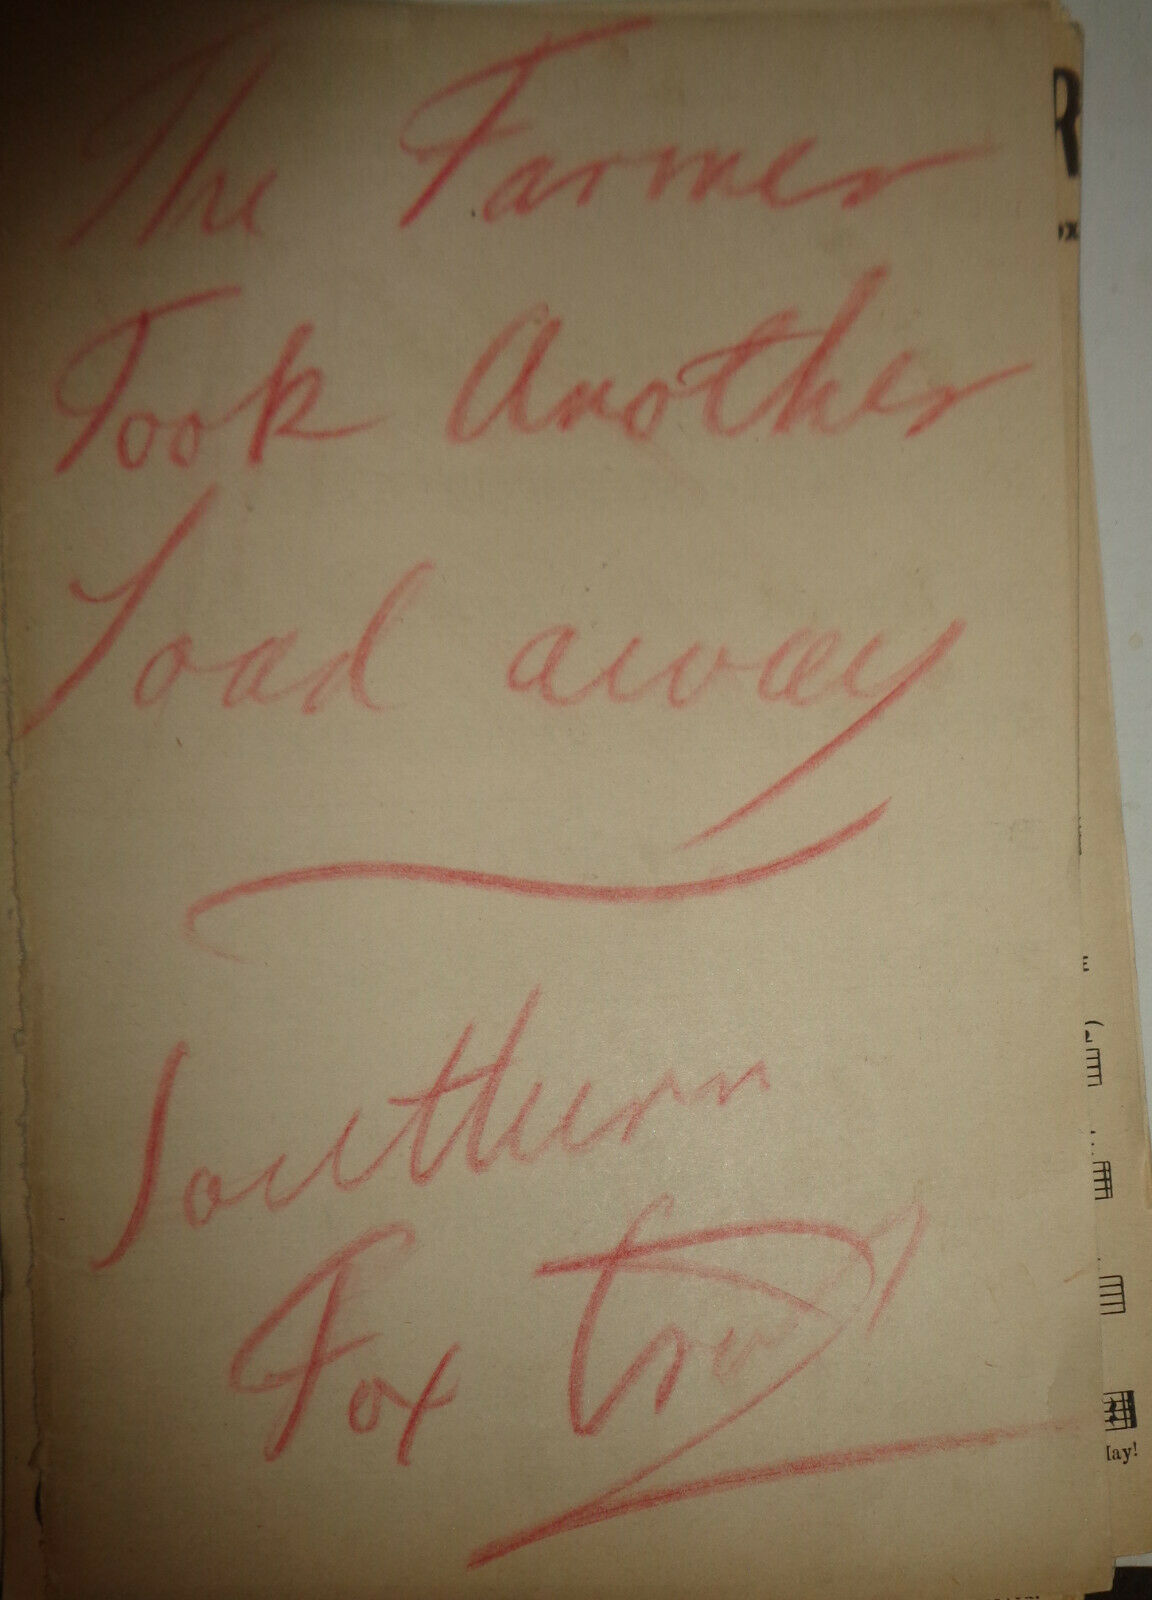 The Farmer
Took Another
Load away
Southern
Fox Trot
R
ox
E
Hay!